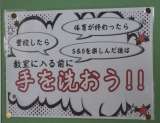 体育が終わったら
登校したら
S&Sを楽しんだ後は
教室に入る前に
手を洗おう!!